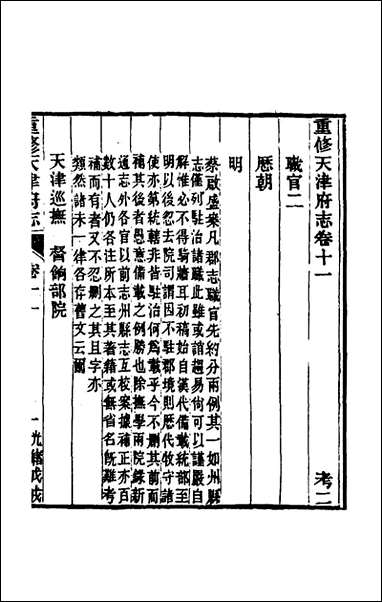 重修天津府志卷十一 考二
職官二
歷朝
明
蔡啟盛案凡郡志職官先約分兩例其一如州縣
志僅列駐治諸職此雖或謂趨易尚可以謹嚴自
解惟必不得騎牆耳初稿始自漢代備載統部至
明以後忽去院司謂因不駐郡境則歷代牧守諸
使亦第統轄非皆駐治何為載乎今不刪其前而
補其後者愚意備載之例勝也除撫學兩院錄新
通志外各官以前志州縣志互校案據補正亦百
數十人仍各注所本至其著籍或無省名既難考
補而有者又不忍刪之其且字亦
類然諸未一律各存舊文云爾
天津巡撫 督餉部院
重修天津府志 卷十一 一 光緒戊戌